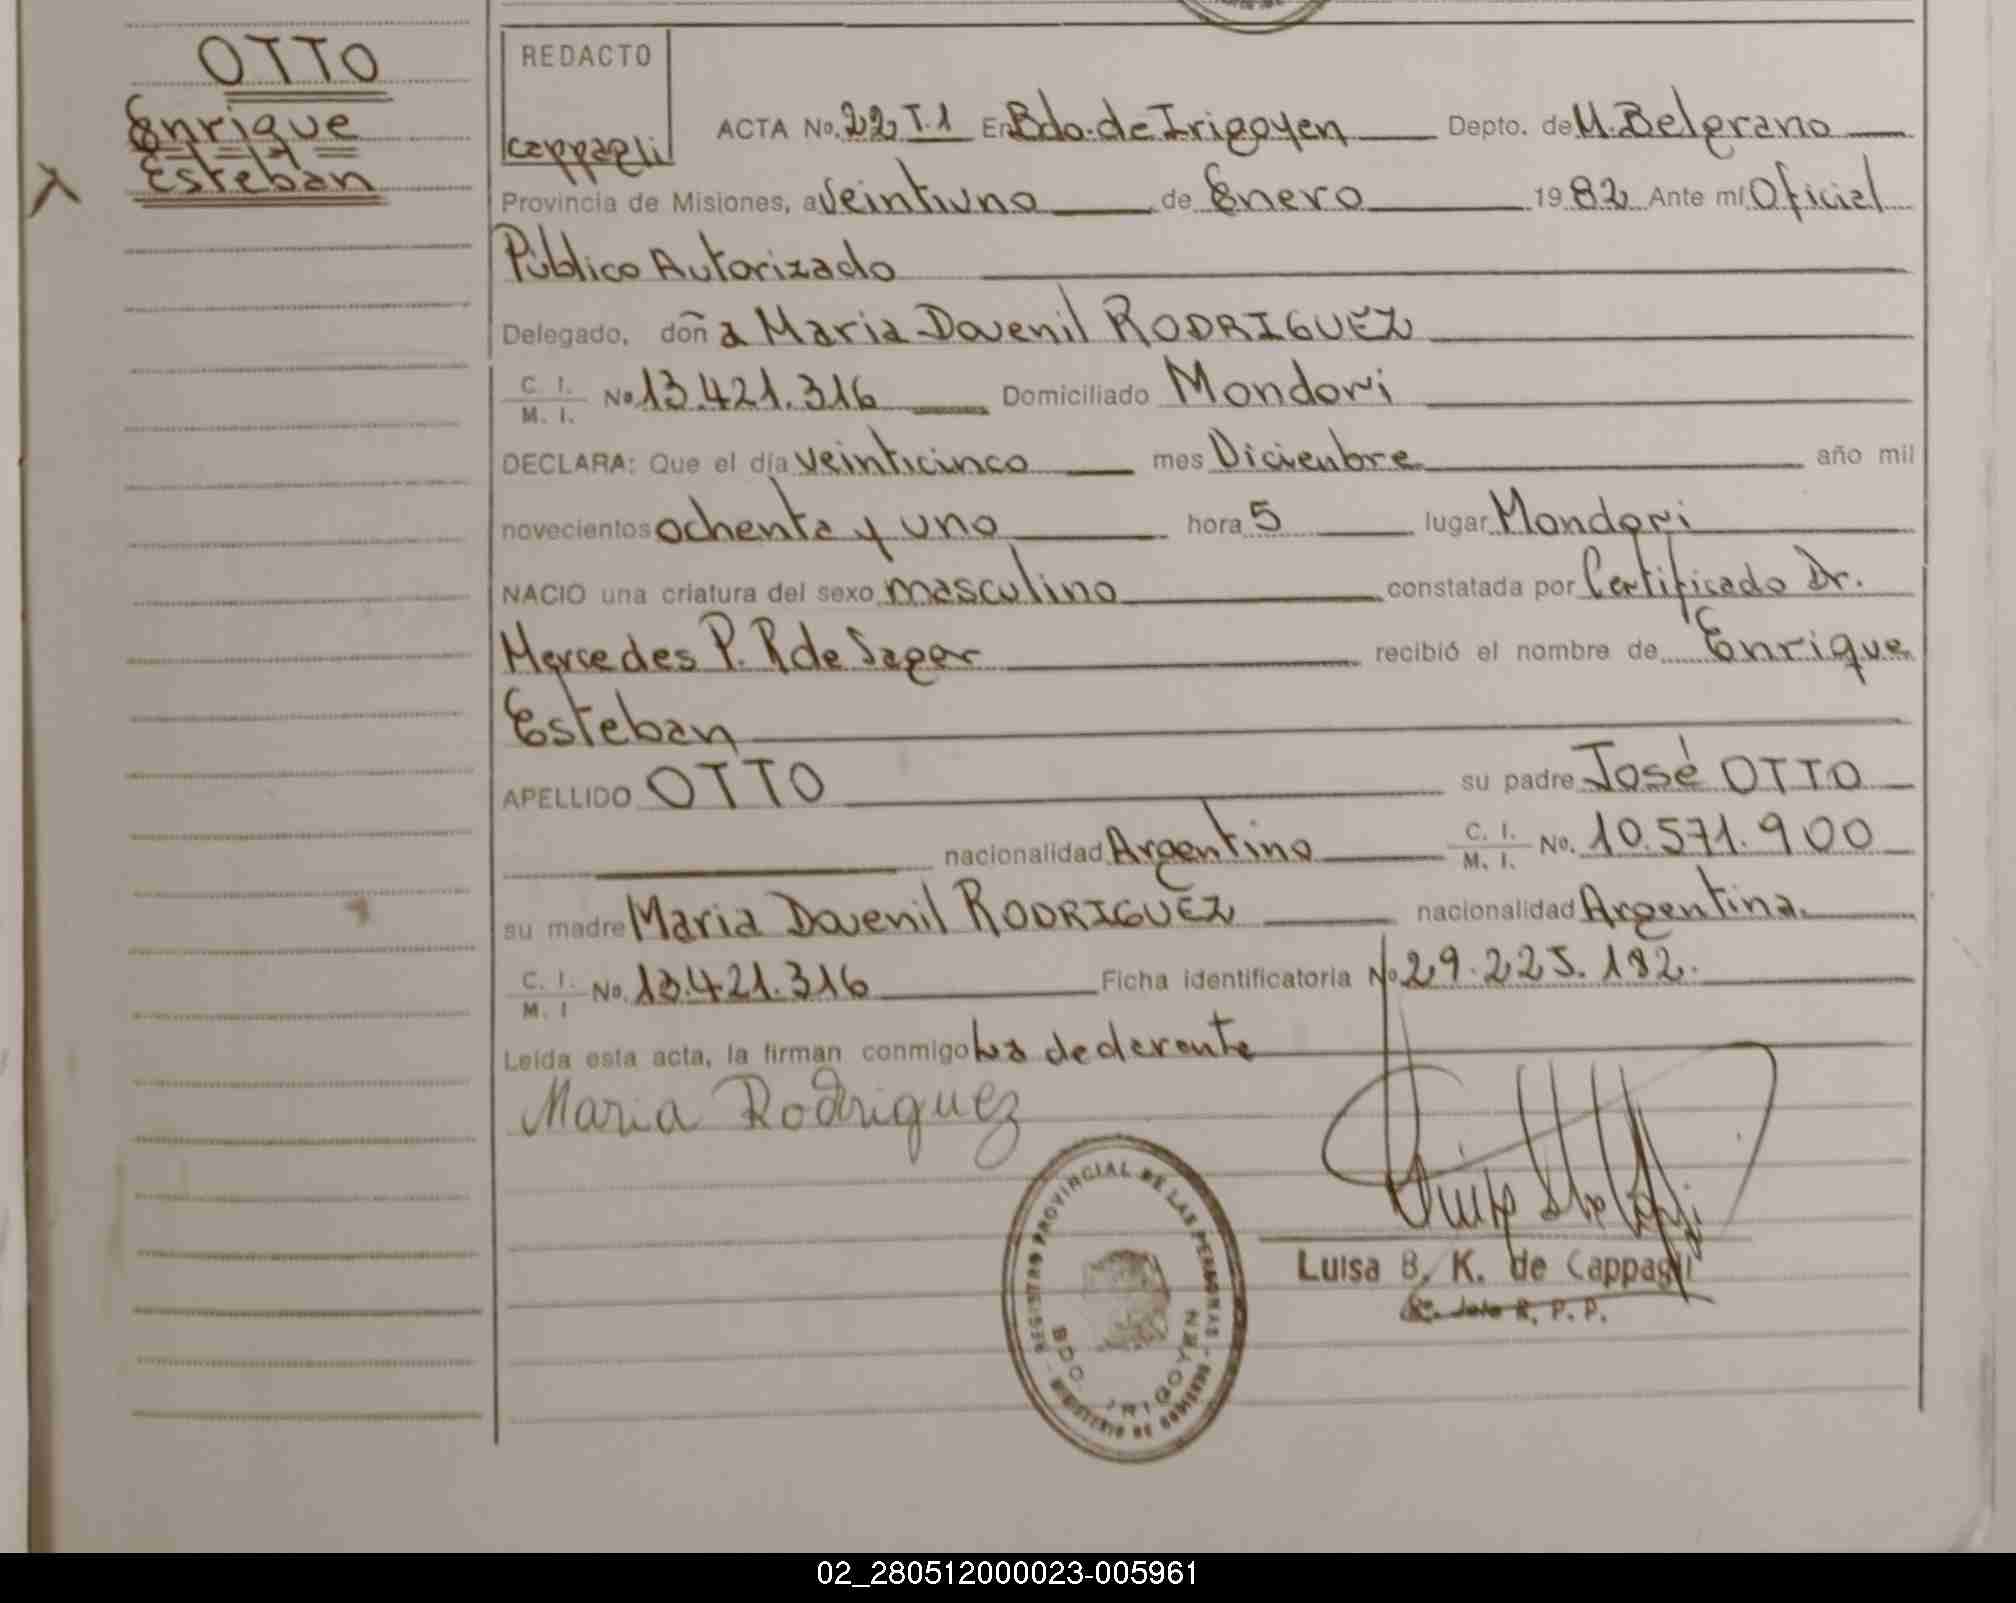 OTTO
Enrique
Esteban
REDACTO
Cappagli
ACTA No. 22 T.1 En Bdo. de Irigoyen Depto. de M. Belgrano
Provincia de Misiones, a veintiuno de Enero 1982 Ante mí Oficial
Público Autorizado
Delegado, doña Maria Dovenil RODRIGUEZ
C. I. / M. I. No 13.421.316 Domiciliado Mondori
DECLARA: Que el día veinticinco mes Diciembre año mil
novecientos ochenta y uno hora 5 lugar Mondori
NACIO una criatura del sexo masculino constatada por Certificado Dr.
Mercedes P. R de Sagar recibió el nombre de Enrique
Esteban
APELLIDO OTTO su padre José OTTO
nacionalidad Argentino C. I. / M. I. No. 10.571.900
su madre Maria Dovenil RODRIGUEZ nacionalidad Argentina.
C. I. / M. I No. 13.421.316 Ficha identificatoria No 29.225.182.
Leída esta acta, la firman conmigo la declarante
Maria Rodriguez
REGISTRO PROVINCIAL DE LAS PERSONAS
BDO. IRIGOYEN
MINISTERIO DE GOBIERNO
Luisa B. K. de Cappagli
R. P. P.
02_280512000023-005961